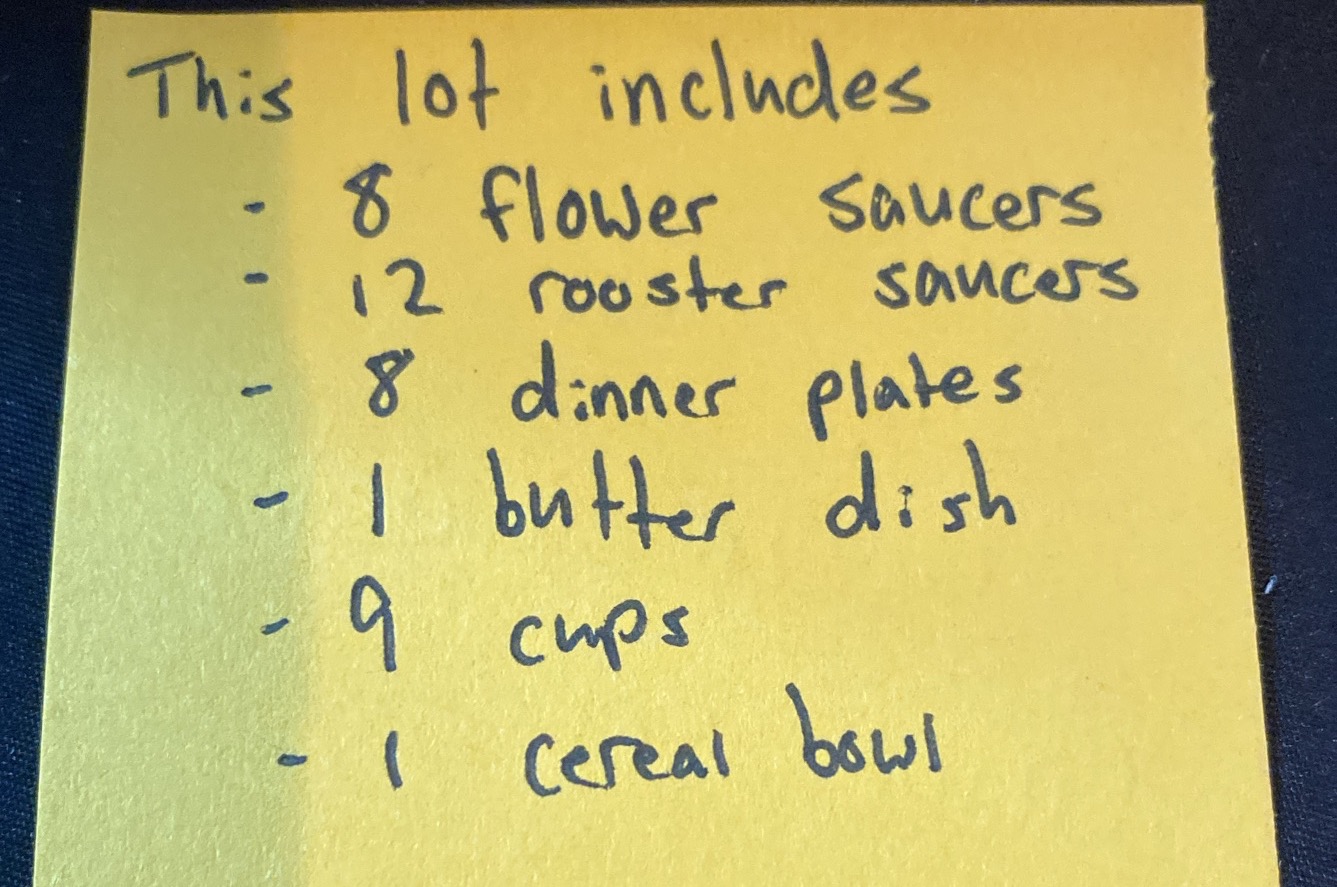 This lot includes
- 8 flower saucers
- 12 rooster saucers
- 8 dinner plates
- 1 butter dish
- 9 cups
- 1 cereal bowl